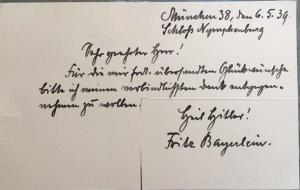 München 38, den 6.5.39.
Schloß Nymphenburg
Sehr geehrter Herr!
Für die mir frdl. übersandten Glückwünsche
bitte ich meinen verbindlichsten Dank entgegen-
nehmen zu wollen.
Heil Hitler!
Fritz Bayerlein.